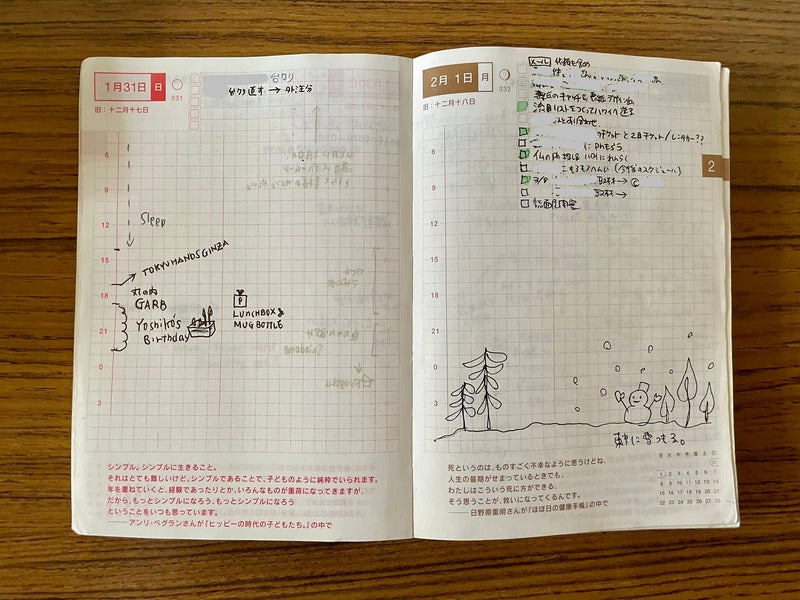 1月31日 日
031
旧:十二月十七日
台ワリ
台ワリ直す → 外注分
6
9
12
Sleep
15
TOKYU HANDS GINZA
18
丸の内
GARB
P
LUNCHBOX &
MUG BOTTLE
21
Yoshiko's
Birthday
0
3
シンプル。シンプルに生きること。
それはとても難しいけど、シンプルであることで、子どものように純粋でいられます。
年を重ねていくと、経験であったりとか、いろんなものが重荷になってきますが、
だから、もっとシンプルになろう、もっとシンプルになろう
ということをいつも思っています。
——アンリ・ベグランさんが『ヒッピーの時代の子どもたち。』の中で
2月 1日 月
032
旧:十二月十八日
メール
流用リストをつくってハワイへ送る
チケットと2日チケット/レンタカー??
にDMもらう
取材→ ©
取材→
2
6
9
12
15
18
21
0
3
東京に雪つもる。
死というのは、ものすごく不幸なように思うけどね、
人生の最期がせまっているときでも、
わたしはこういう死に方ができる、
そう思うことが、救いになってくるんです。
——日野原重明さんが『ほぼ日の健康手帳』の中で
月 火 水 木 金 土 日
31
1 2 3 4 5 6 7
8 9 10 11 12 13 14
15 16 17 18 19 20 21
22 23 24 25 26 27 28